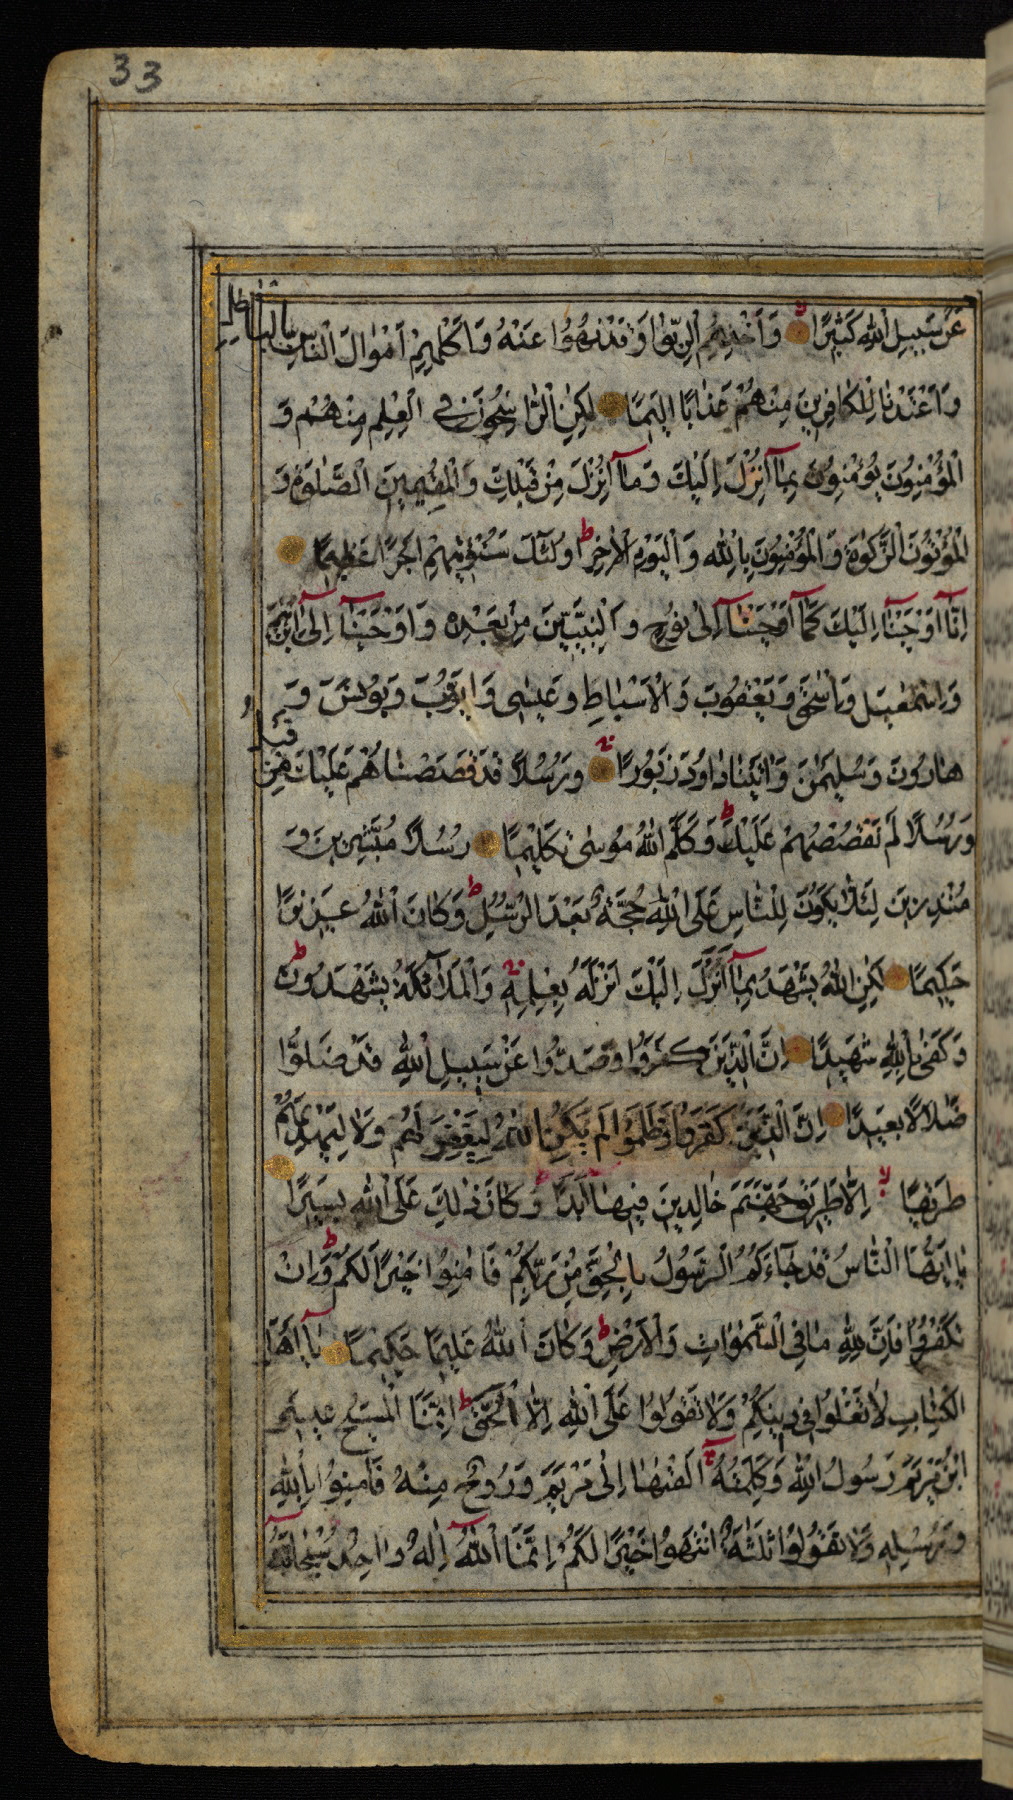 33
عَنْ سَبِيلِ اللّٰهِ كَثِيرًا وَاَخْذِهِمُ الرِّبٰوا وَقَدْ نُهُوا عَنْهُ وَاَكْلِهِمْ اَمْوَالَ النَّاسِ بِالْبَاطِلِ
وَاَعْتَدْنَا لِلْكَافِرِينَ مِنْهُمْ عَذَابًا اَلِيمًا لٰكِنِ الرَّاسِخُونَ فِي الْعِلْمِ مِنْهُمْ وَ
الْمُؤْمِنُونَ يُؤْمِنُونَ بِمَآ اُنْزِلَ اِلَيْكَ وَمَآ اُنْزِلَ مِنْ قَبْلِكَ وَالْمُقِيمِينَ الصَّلٰوةَ وَ
الْمُؤْتُونَ الزَّكٰوةَ وَالْمُؤْمِنُونَ بِاللّٰهِ وَالْيَوْمِ الْاٰخِرِ ط اُولٰٓئِكَ سَنُؤْتِيهِمْ اَجْرًا عَظِيمًا
اِنَّآ اَوْحَيْنَآ اِلَيْكَ كَمَآ اَوْحَيْنَآ اِلٰى نُوحٍ وَالنَّبِيِّينَ مِنْ بَعْدِهِ وَاَوْحَيْنَآ اِلٰٓى اِبْرٰهِيمَ
وَاِسْمٰعِيلَ وَاِسْحٰقَ وَيَعْقُوبَ وَالْاَسْبَاطِ وَعِيسٰى وَاَيُّوبَ وَيُونُسَ وَ
هَارُونَ وَسُلَيْمٰنَ وَاٰتَيْنَا دَاوُدَ زَبُورًا وَرُسُلًا قَدْ قَصَصْنَاهُمْ عَلَيْكَ مِنْ قَبْلُ
وَرُسُلًا لَمْ نَقْصُصْهُمْ عَلَيْكَ ط وَكَلَّمَ اللّٰهُ مُوسٰى تَكْلِيمًا رُسُلًا مُبَشِّرِينَ وَ
مُنْذِرِينَ لِئَلَّا يَكُونَ لِلنَّاسِ عَلَى اللّٰهِ حُجَّةٌ بَعْدَ الرُّسُلِ ط وَكَانَ اللّٰهُ عَزِيزًا
حَكِيمًا لٰكِنِ اللّٰهُ يَشْهَدُ بِمَآ اَنْزَلَ اِلَيْكَ اَنْزَلَهُ بِعِلْمِهِ وَالْمَلَآئِكَةُ يَشْهَدُونَ ط
وَكَفٰى بِاللّٰهِ شَهِيدًا اِنَّ الَّذِينَ كَفَرُوا وَصَدُّوا عَنْ سَبِيلِ اللّٰهِ قَدْ ضَلُّوا
ضَلَالًا بَعِيدًا اِنَّ الَّذِينَ كَفَرُوا وَظَلَمُوا لَمْ يَكُنِ اللّٰهُ لِيَغْفِرَ لَهُمْ وَلَا لِيَهْدِيَهُمْ
طَرِيقًا لا اِلَّا طَرِيقَ جَهَنَّمَ خَالِدِينَ فِيهَآ اَبَدًا ط وَكَانَ ذٰلِكَ عَلَى اللّٰهِ يَسِيرًا
يٰٓا اَيُّهَا النَّاسُ قَدْ جَآءَكُمُ الرَّسُولُ بِالْحَقِّ مِنْ رَبِّكُمْ فَاٰمِنُوا خَيْرًا لَكُمْ ط وَاِنْ
تَكْفُرُوا فَاِنَّ لِلّٰهِ مَا فِي السَّمٰوَاتِ وَالْاَرْضِ ط وَكَانَ اللّٰهُ عَلِيمًا حَكِيمًا يَآ اَهْلَ
الْكِتَابِ لَا تَغْلُوا فِي دِينِكُمْ وَلَا تَقُولُوا عَلَى اللّٰهِ اِلَّا الْحَقَّ ط اِنَّمَا الْمَسِيحُ عِيسَى
ابْنُ مَرْيَمَ رَسُولُ اللّٰهِ وَكَلِمَتُهُ اَلْقٰيهَا اِلٰى مَرْيَمَ وَرُوحٌ مِنْهُ فَاٰمِنُوا بِاللّٰهِ
وَرُسُلِهِ وَلَا تَقُولُوا ثَلٰثَةٌ انْتَهُوا خَيْرًا لَكُمْ اِنَّمَا اللّٰهُ اِلٰهٌ وَاحِدٌ سُبْحَانَهُ